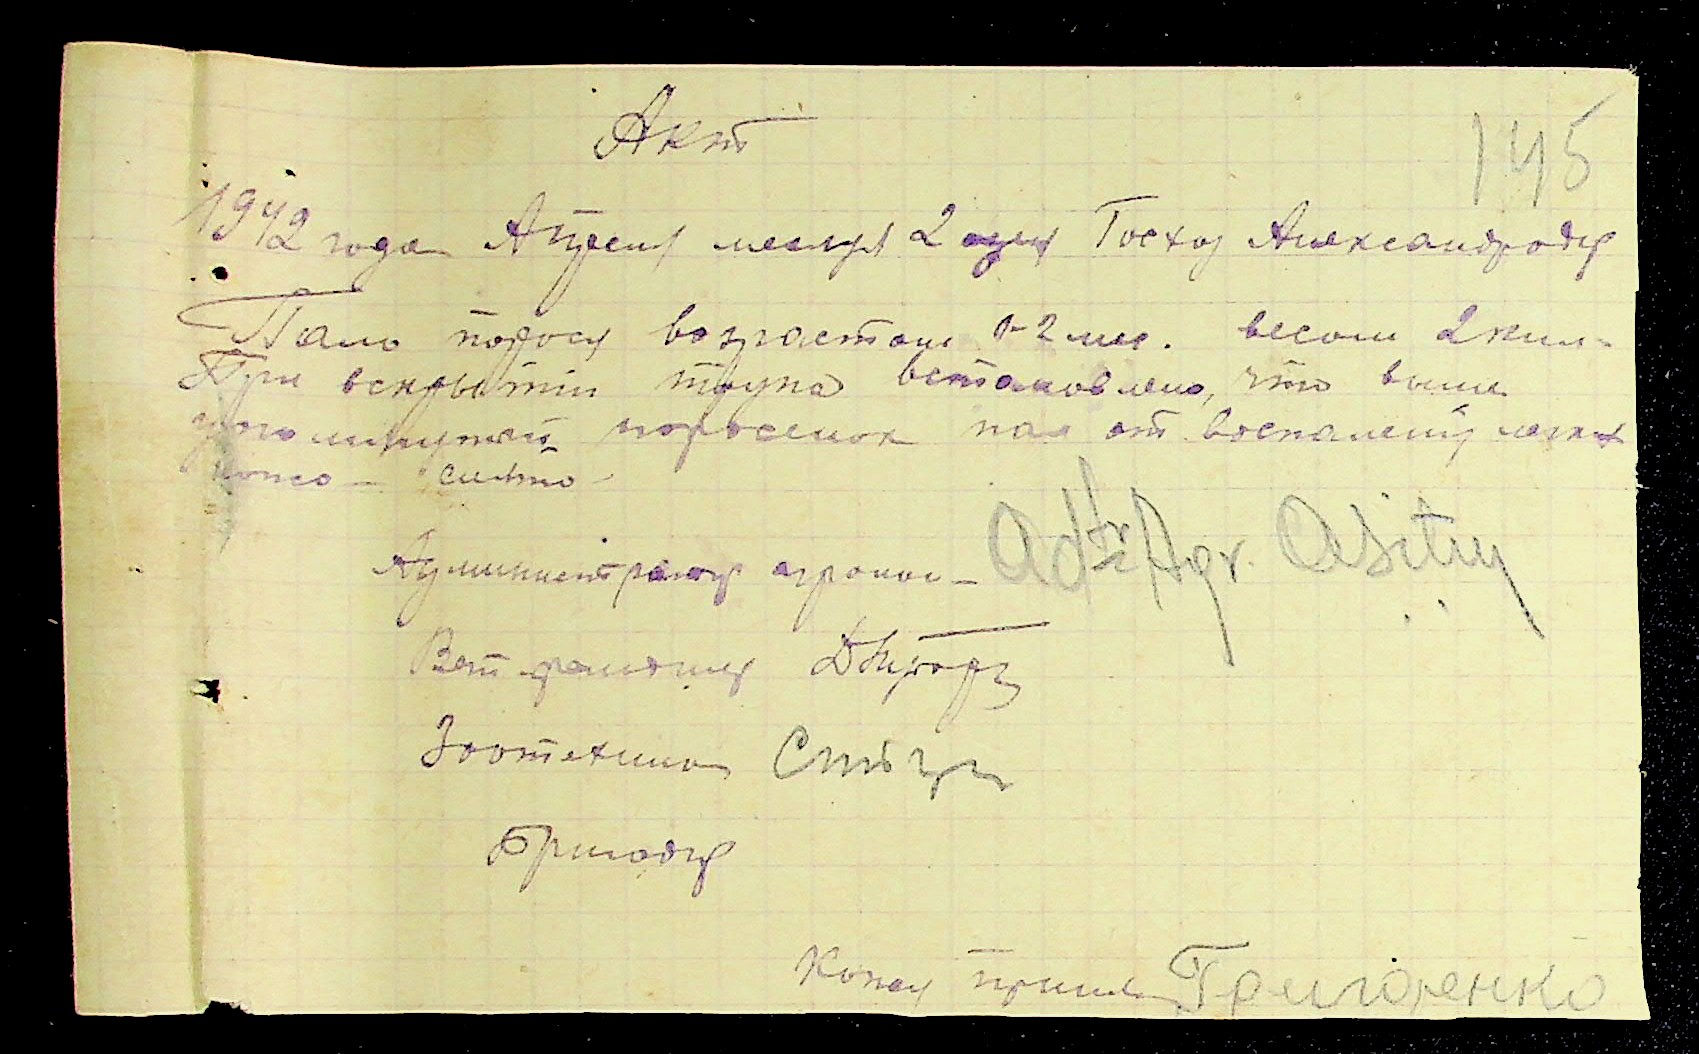 Акт
145
1942 года Апреля месяца 2 дня Госхоз Александродар
Пало порося возрастом 1-2 мес. весом 2 кил-
При вскрытии трупа встановлено, что выше
упомянутый поросенок пал от воспаления легких
кожа - снято -
Администратор агроном -
Вет фельдшер
Зоотехник
Бригадир
Кожу принял Григоренко